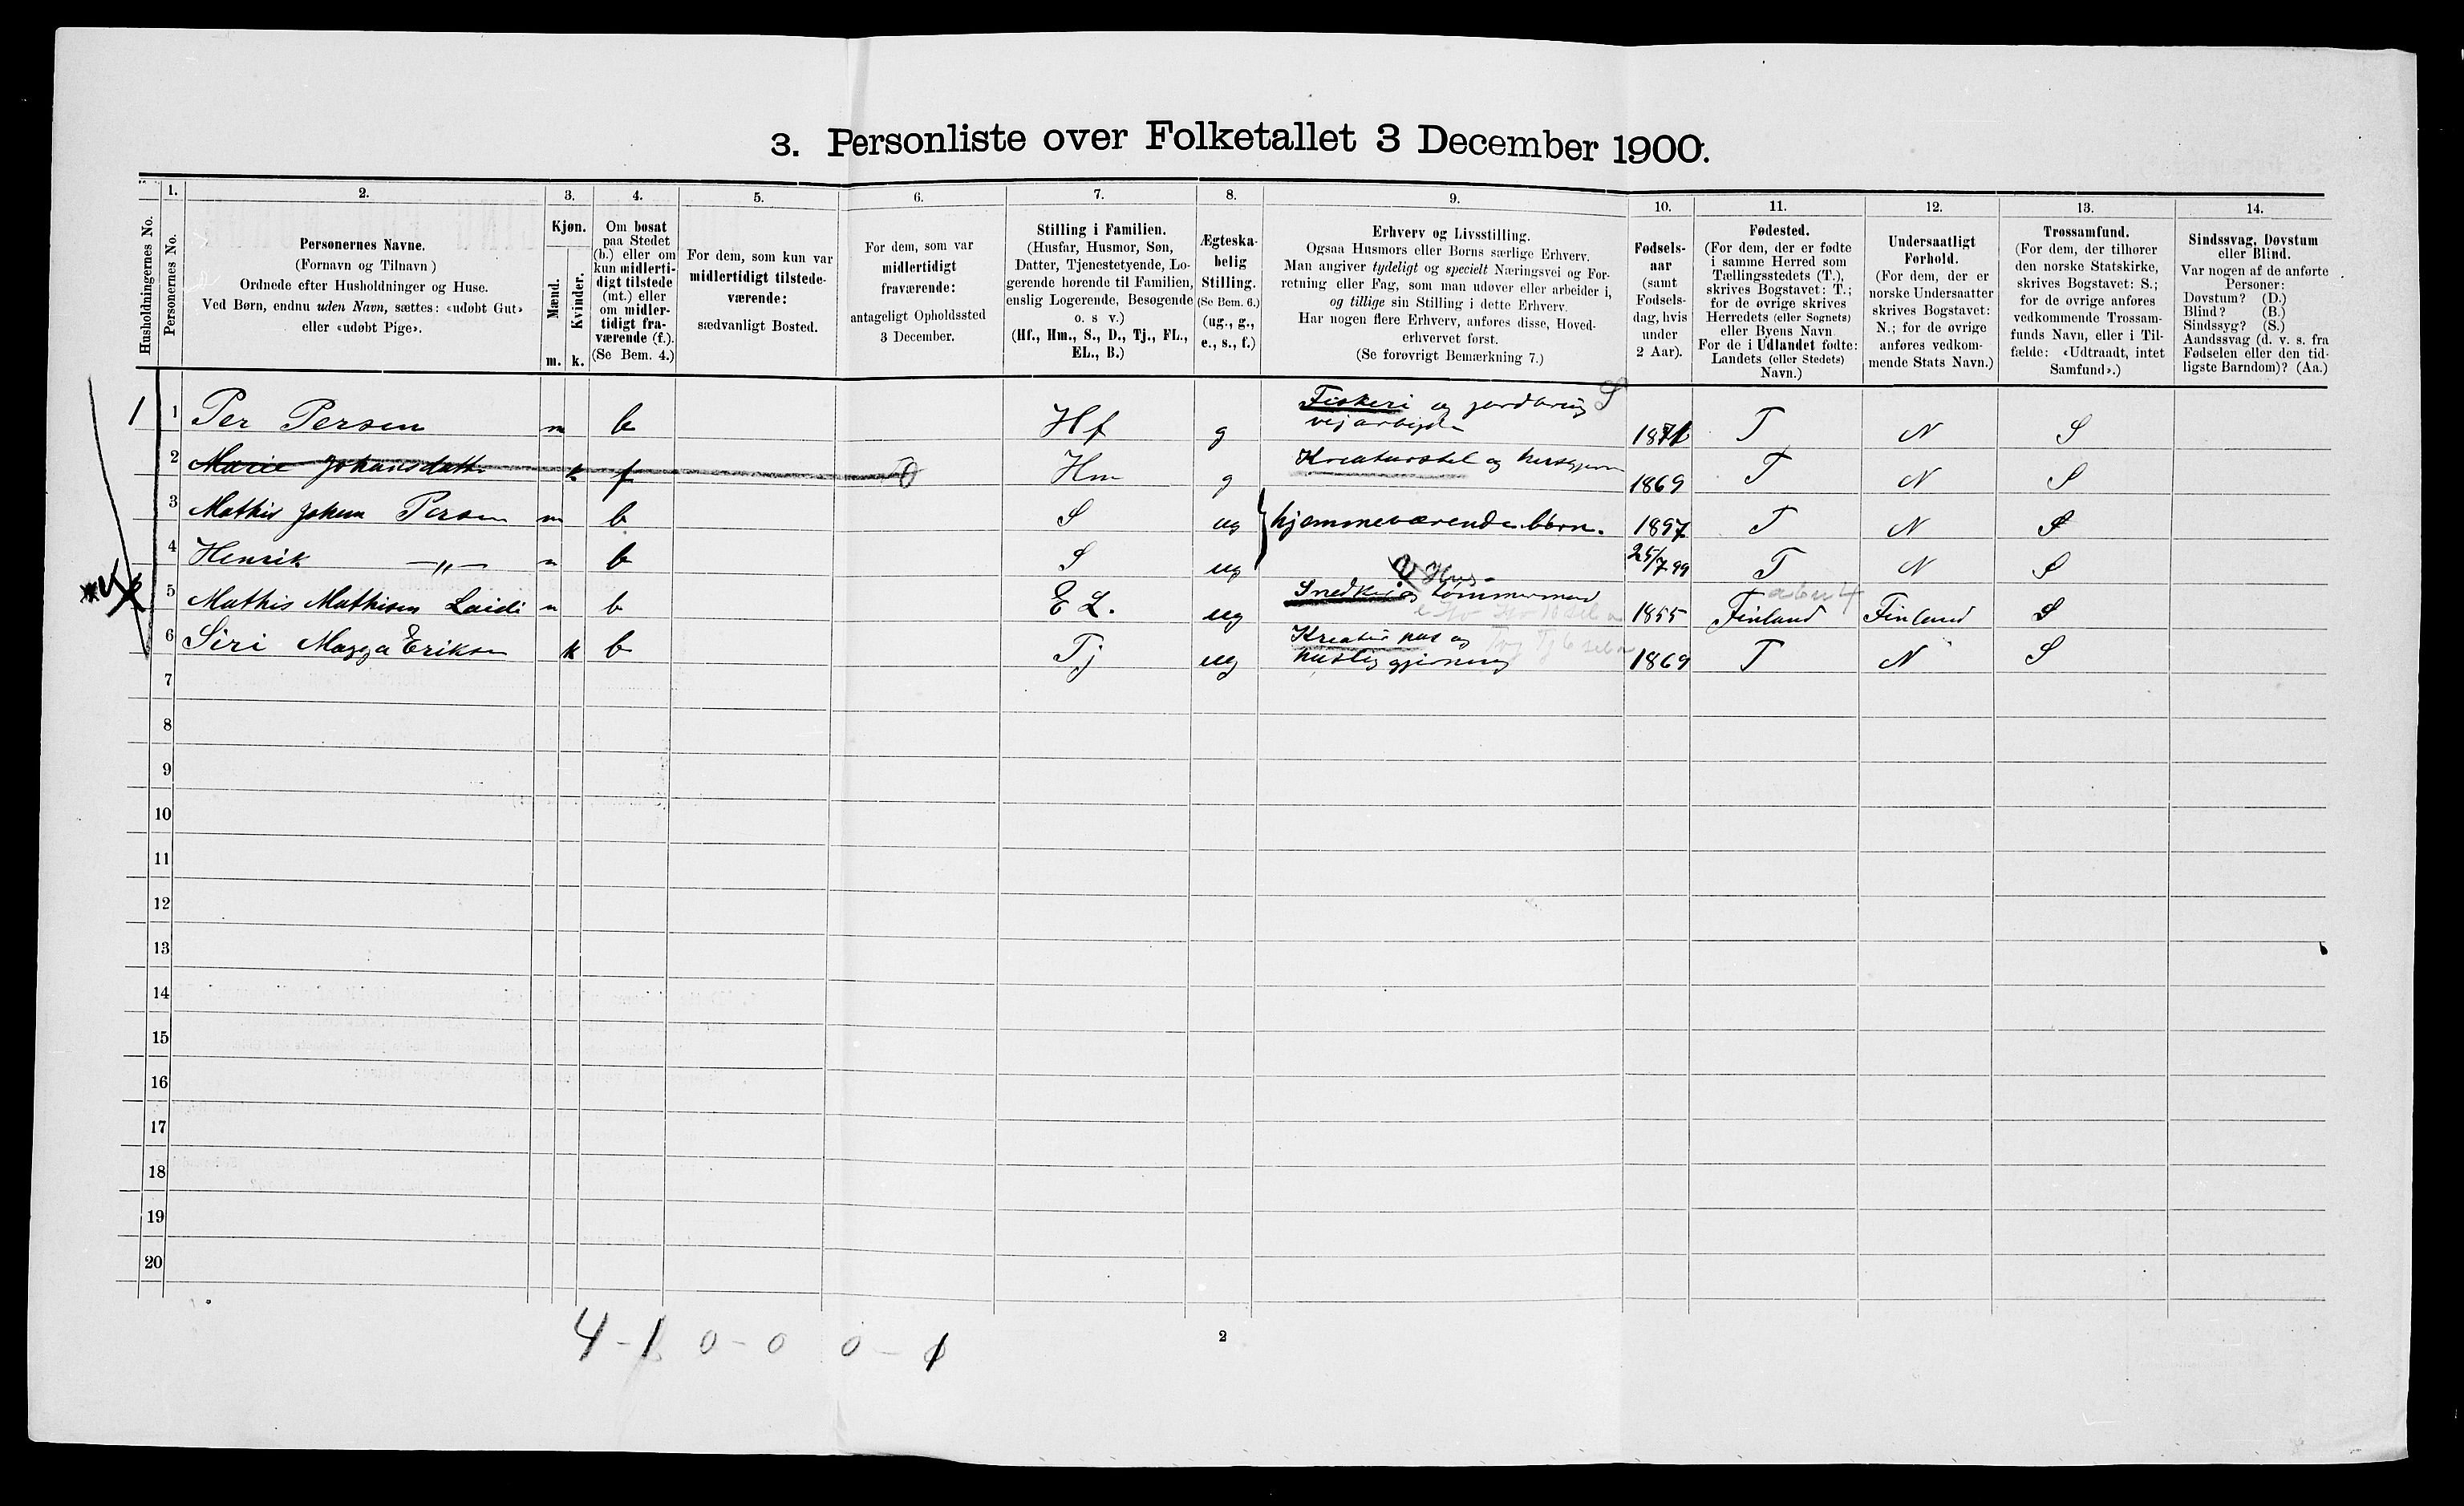 3. Personliste over Folketallet 3 December 1900.
Husholdningernes No.
1.
Personernes No.
2.
Personernes Navne.
(Fornavn og Tilnavn)
Ordnede efter Husholdninger og Huse.
Ved Børn, endnu uden Navn, sættes: «udøbt Gut»
eller «udøbt Pige».
3.
Kjøn.
Mænd.
Kvinder.
m. k.
4.
Om bosat
paa Stedet
(b.) eller om
kun midlerti-
digt tilstede
(mt.) eller
om midler-
tidigt fra-
værende (f.).
(Se Bem. 4.)
5.
For dem, som kun var
midlertidigt tilstede-
værende:
sædvanligt Bosted.
6.
For dem, som var
midlertidigt
fraværende:
antageligt Opholdssted
3 December.
7.
Stilling i Familien.
(Husfar, Husmor, Søn,
Datter, Tjenestetyende, Lo-
gerende hørende til Familien,
enslig Logerende, Besøgende
o. s v.)
(Hf., Hm., S., D., Tj., FL.,
EL., B.)
8.
Ægteska-
belig
Stilling.
(Se Bem. 6.)
(ug., g.,
e., s., f.)
9.
Erhverv og Livsstilling.
Ogsaa Husmors eller Børns særlige Erhverv.
Man angiver tydeligt og specielt Næringsvei og For-
retning eller Fag, som man udøver eller arbeider i,
og tillige sin Stilling i dette Erhverv.
Har nogen flere Erhverv, anføres disse, Hoved-
erhvervet først.
(Se forøvrigt Bemærkning 7.)
10.
Fødsels-
aar
(samt
Fødsels-
dag, hvis
under
2 Aar).
11.
Fødested.
(For dem, der er fødte
i samme Herred som
Tællingsstedets (T.),
skrives Bogstavet: T.;
for de øvrige skrives
Herredets (eller Sognets)
eller Byens Navn
For de i Udlandet fødte:
Landets (eller Stedets)
Navn.)
12.
Undersaatligt
Forhold.
(For dem, der er
norske Undersaatter
skrives Bogstavet:
N.; for de øvrige
anføres vedkom-
mende Stats Navn.)
13.
Trossamfund.
(For dem, der tilhører
den norske Statskirke,
skrives Bogstavet: S.;
for de øvrige anføres
vedkommende Trossam-
funds Navn, eller i Til-
fælde: «Udtraadt, intet
Samfund».)
14.
Sindssvag, Døvstum
eller Blind.
Var nogen af de anførte
Personer:
Døvstum? (D.)
Blind? (B.)
Sindssyg? (S.)
Aandssvag (d. v. s. fra
Fødselen eller den tid-
ligste Barndom)? (Aa.)
1 1 Per Persen m b Hf g Fiskeri og jordbrug S
vejarbejde 1871 T N S
2 Marie Johansdatter k f 0 Hm g Kreaturstel og 1869 T N S
3 Mathis Johan Persen m b S ug hjemmeværende børn. 1897 T N S
4 Henrik —„— m b S ug 25/7 99 T N S
5 Mathis Mathisen Laidi m b EL. ug Hus-
Snedker og tømmermand 1855 Finland Finland S
6 Siri Magga Eriksen k b Tj ug
huslig gjerning 1869 T N S
7
8
9
10
11
12
13
14
15
16
17
18
19
20
4 - 1 0 - 0 0 - 1
2